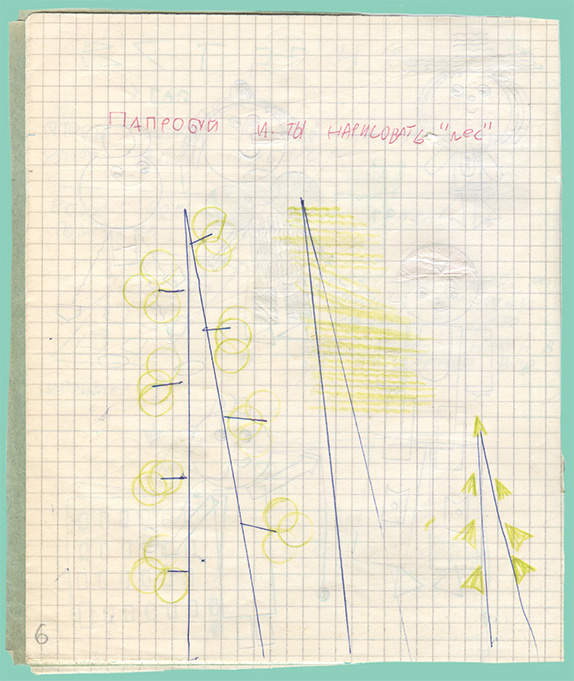 ПАПРОБУЙ И ТЫ НАРИСОВАТЬ "лес"
6